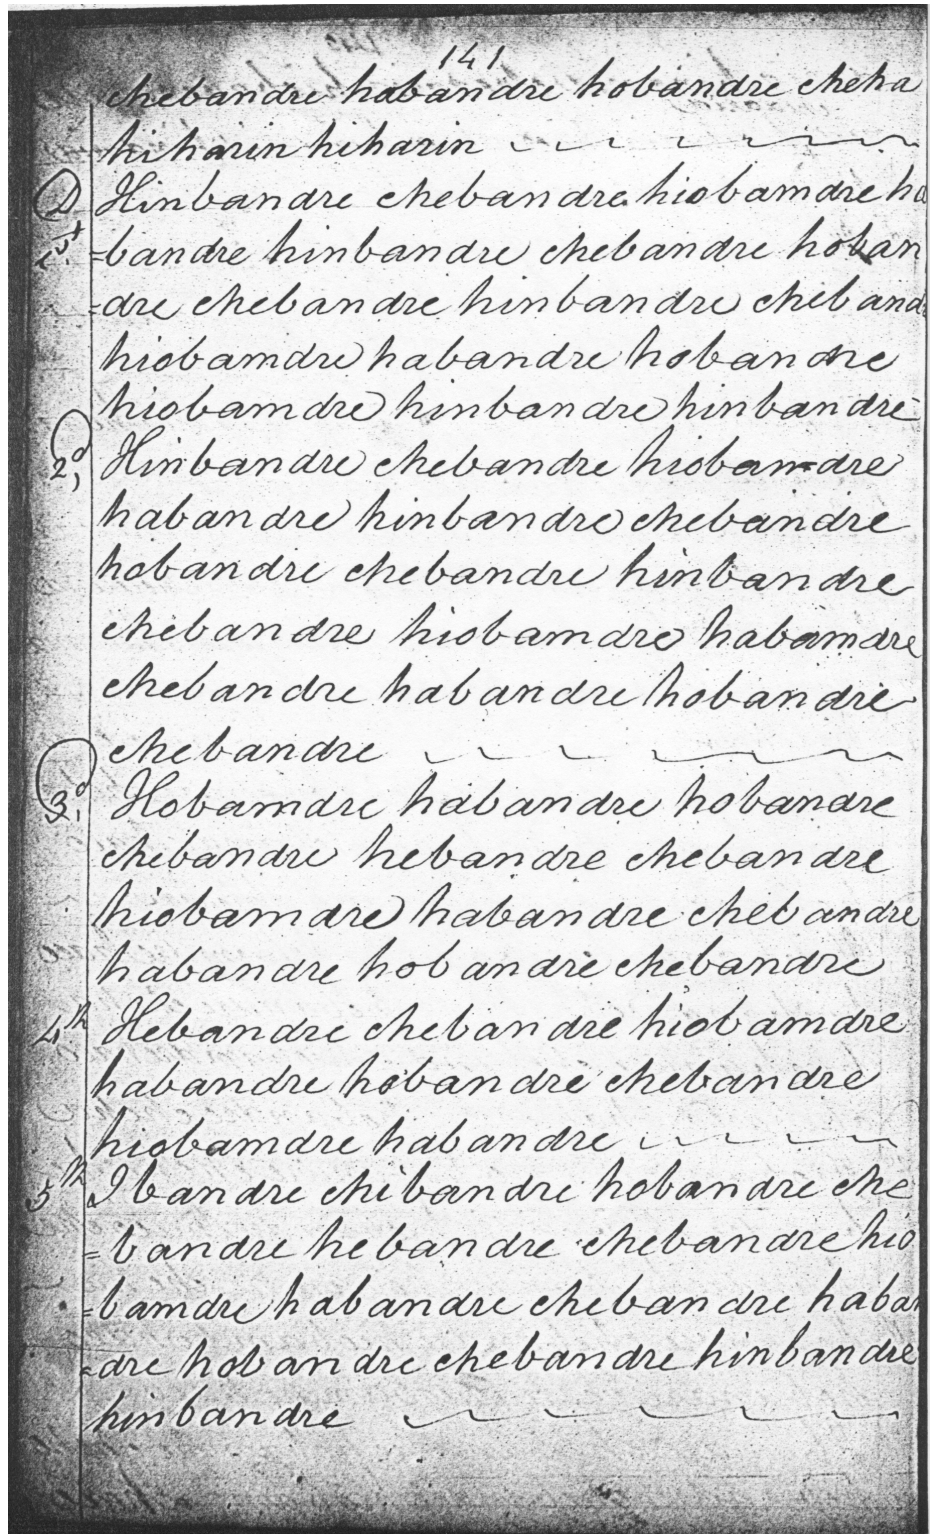 141
chebandre habandre hobandre cheha
hiharin hiharin
D Hinbandre chebandre hiobamdre ha
1st =bandre hinbandre chebandre hoban
=dre chebandre hinbandre cheband
hiobamdre habandre hobandre
hiobamdre hinbandre hinbandre
2d, Hinbandre chebandre hiobamdre
habandre hinbandre chebandre
hobandre chebandre hinbandre
chebandre hiobamdre habamdre
chebandre habandre hobandre
chebandre
3d, Hobamdre habandre hobandre
chebandre hebandre chebandre
hiobamdre habandre chebandre
habandre hobandre chebandre
4th Hebandre chebandre hiobamdre
habandre hobandre chebandre
hiobamdre habandre
5th Ibandre chibandre hobandre che
=bandre hebandre chebandre hio
=bamdre habandre chebandre haban
=dre hobandre chebandre hinbandre
hinbandre